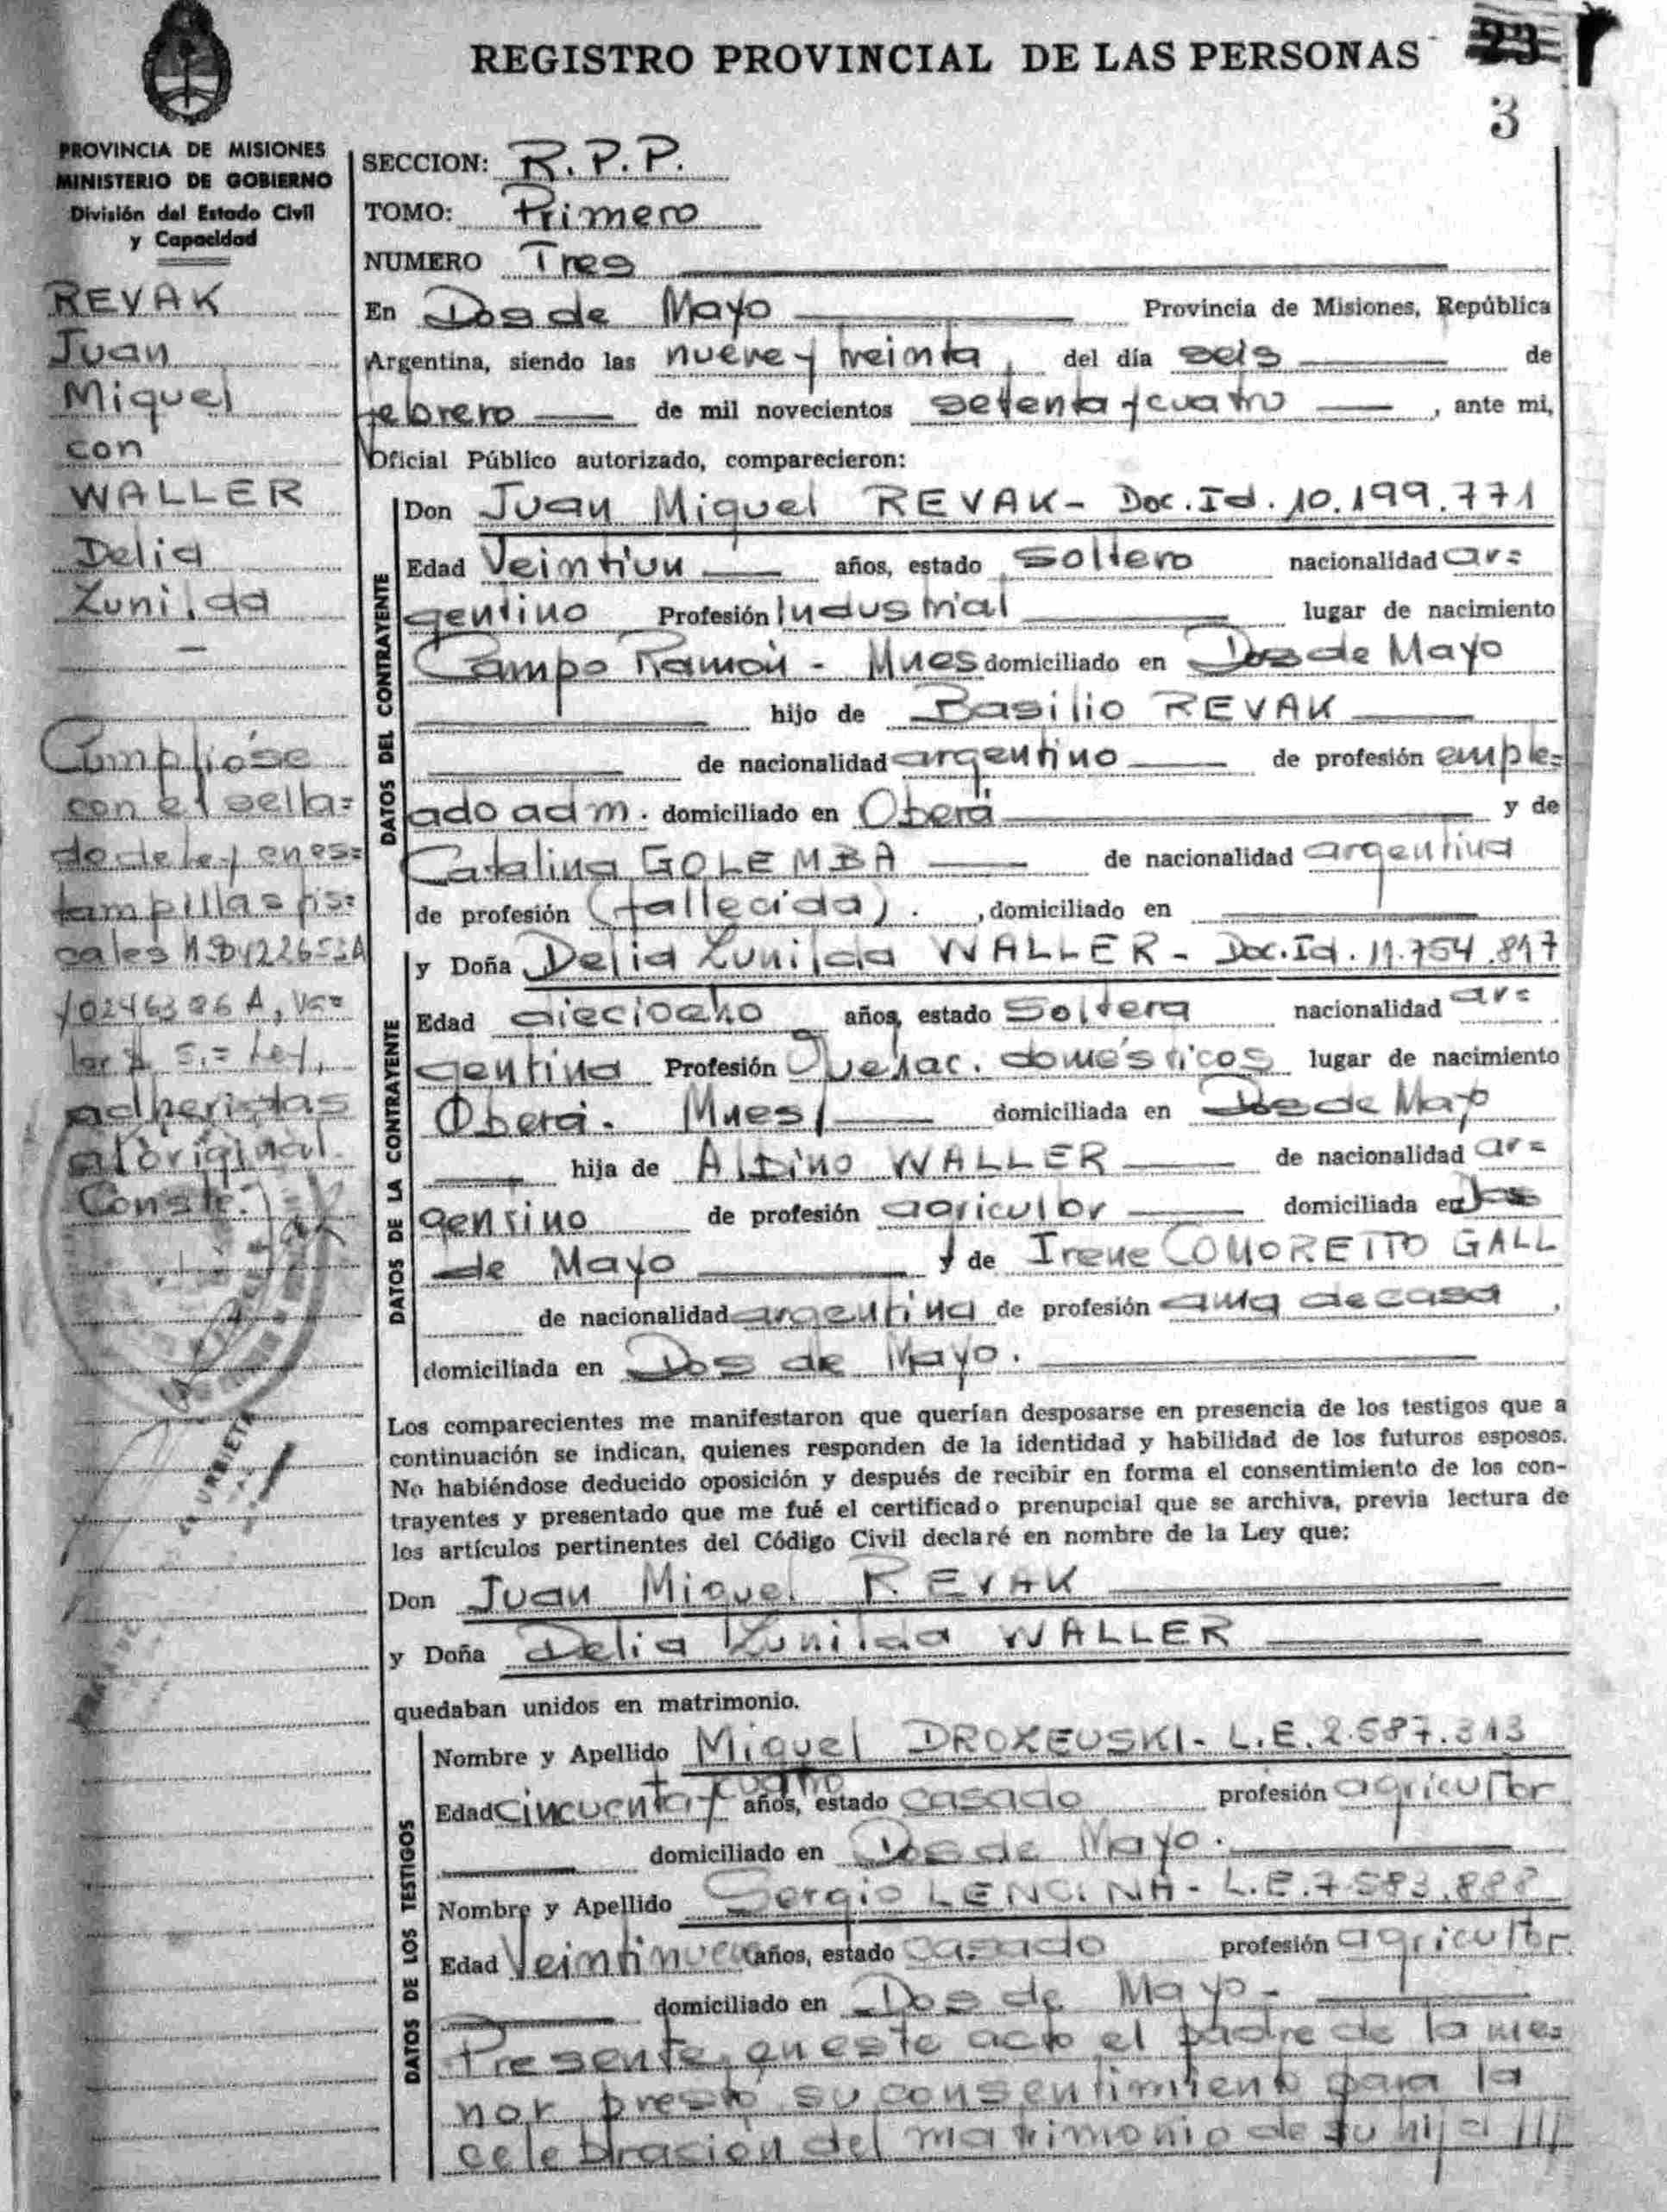 REGISTRO PROVINCIAL DE LAS PERSONAS
23
3
PROVINCIA DE MISIONES
MINISTERIO DE GOBIERNO
División del Estado Civil
y Capacidad
REVAK
Juan
Miguel
con
WALLER
Delia
Zunilda
Cumplióse
con el sella=
do de ley en es=
tampillas fis=
cales
lor $ 5.= Ley,
adheridas
al original.
Conste.
URBIETA
SECCION: R.P.P.
TOMO: Primero
NUMERO Tres
En Dos de Mayo Provincia de Misiones, República
Argentina, siendo las nueve y treinta del día seis de
febrero de mil novecientos setenta y cuatro, ante mi,
Oficial Público autorizado, comparecieron:
DATOS DEL CONTRAYENTE
Don Juan Miguel REVAK- Doc.Id. 10.199.771
Edad Veintiun años, estado soltero nacionalidad ar=
gentino Profesión Industrial lugar de nacimiento
Campo Ramón - Mnes domiciliado en Dos de Mayo
hijo de Basilio REVAK
de nacionalidad argentino de profesión emple=
ado adm. domiciliado en Oberá y de
Catalina GOLEMBA de nacionalidad argentina
de profesión (fallecida). , domiciliado en
DATOS DE LA CONTRAYENTE
y Doña Delia Zunilda WALLER- Doc.Id. 11.754.817
Edad dieciocho años, estado Soltera nacionalidad ar=
gentina Profesión Quehac. domésticos lugar de nacimiento
Oberá. Mnes/ domiciliada en Dos de Mayo
hija de Albino WALLER de nacionalidad ar=
gentino de profesión agricultor domiciliada en Dos
de Mayo y de Irene COMORETTO GALL
de nacionalidad argentina de profesión ama de casa ,
domiciliada en Dos de Mayo.
Los comparecientes me manifestaron que querían desposarse en presencia de los testigos que a
continuación se indican, quienes responden de la identidad y habilidad de los futuros esposos.
No habiéndose deducido oposición y después de recibir en forma el consentimiento de los con-
trayentes y presentado que me fué el certificado prenupcial que se archiva, previa lectura de
los artículos pertinentes del Código Civil declaré en nombre de la Ley que:
Don Juan Miguel REVAK
y Doña Delia Zunilda WALLER
quedaban unidos en matrimonio.
DATOS DE LOS TESTIGOS
Nombre y Apellido Miguel DROZEUSKI- L.E.2.587.313
Edad cincuenta y cuatro años, estado casado profesión agricultor
domiciliado en Dos de Mayo.
Nombre y Apellido Sergio LENCINA- L.E.7.583.888
Edad Veintinueve años, estado casado profesión agricultor.
domiciliado en Dos de Mayo-
Presente en este acto el padre de la me=
nor prestó su consentimiento para la
celebración del matrimonio de su hija ///